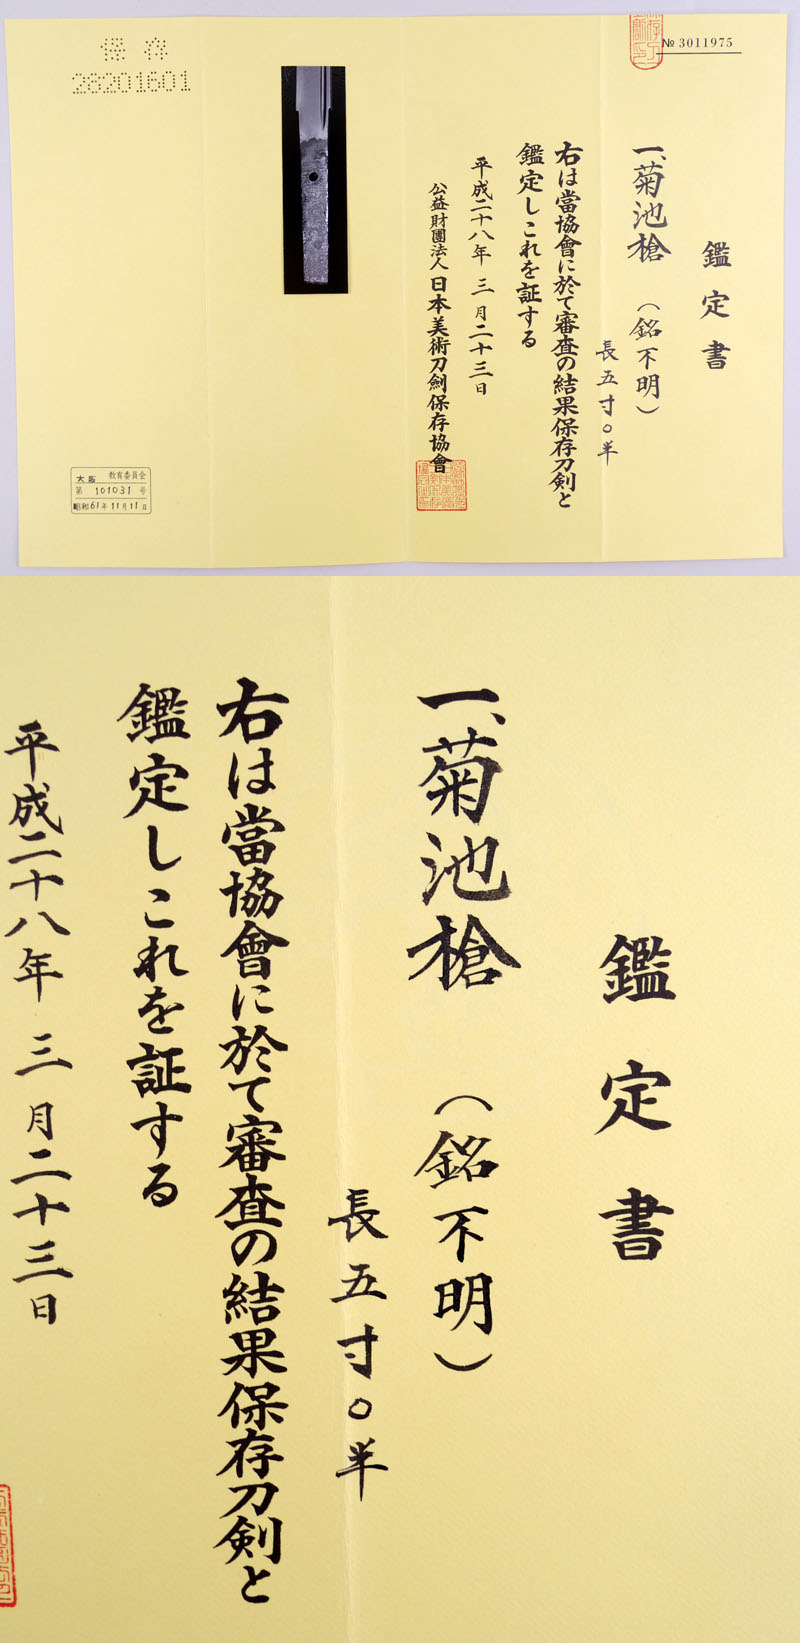 № 3011975
鑑定書
一、菊池槍 (銘不明)
長五寸〇半
右は當協會に於て審査の結果保存刀剣と
鑑定しこれを証する
平成二十八年 三月二十三日
公益財團法人 日本美術刀劍保存協會
保存
28201601
大阪 教育委員会
第 101031 号
昭和61年11月11日
鑑定書
一、菊池槍 (銘不明)
長五寸〇半
右は當協會に於て審査の結果保存刀剣と
鑑定しこれを証する
平成二十八年 三月二十三日